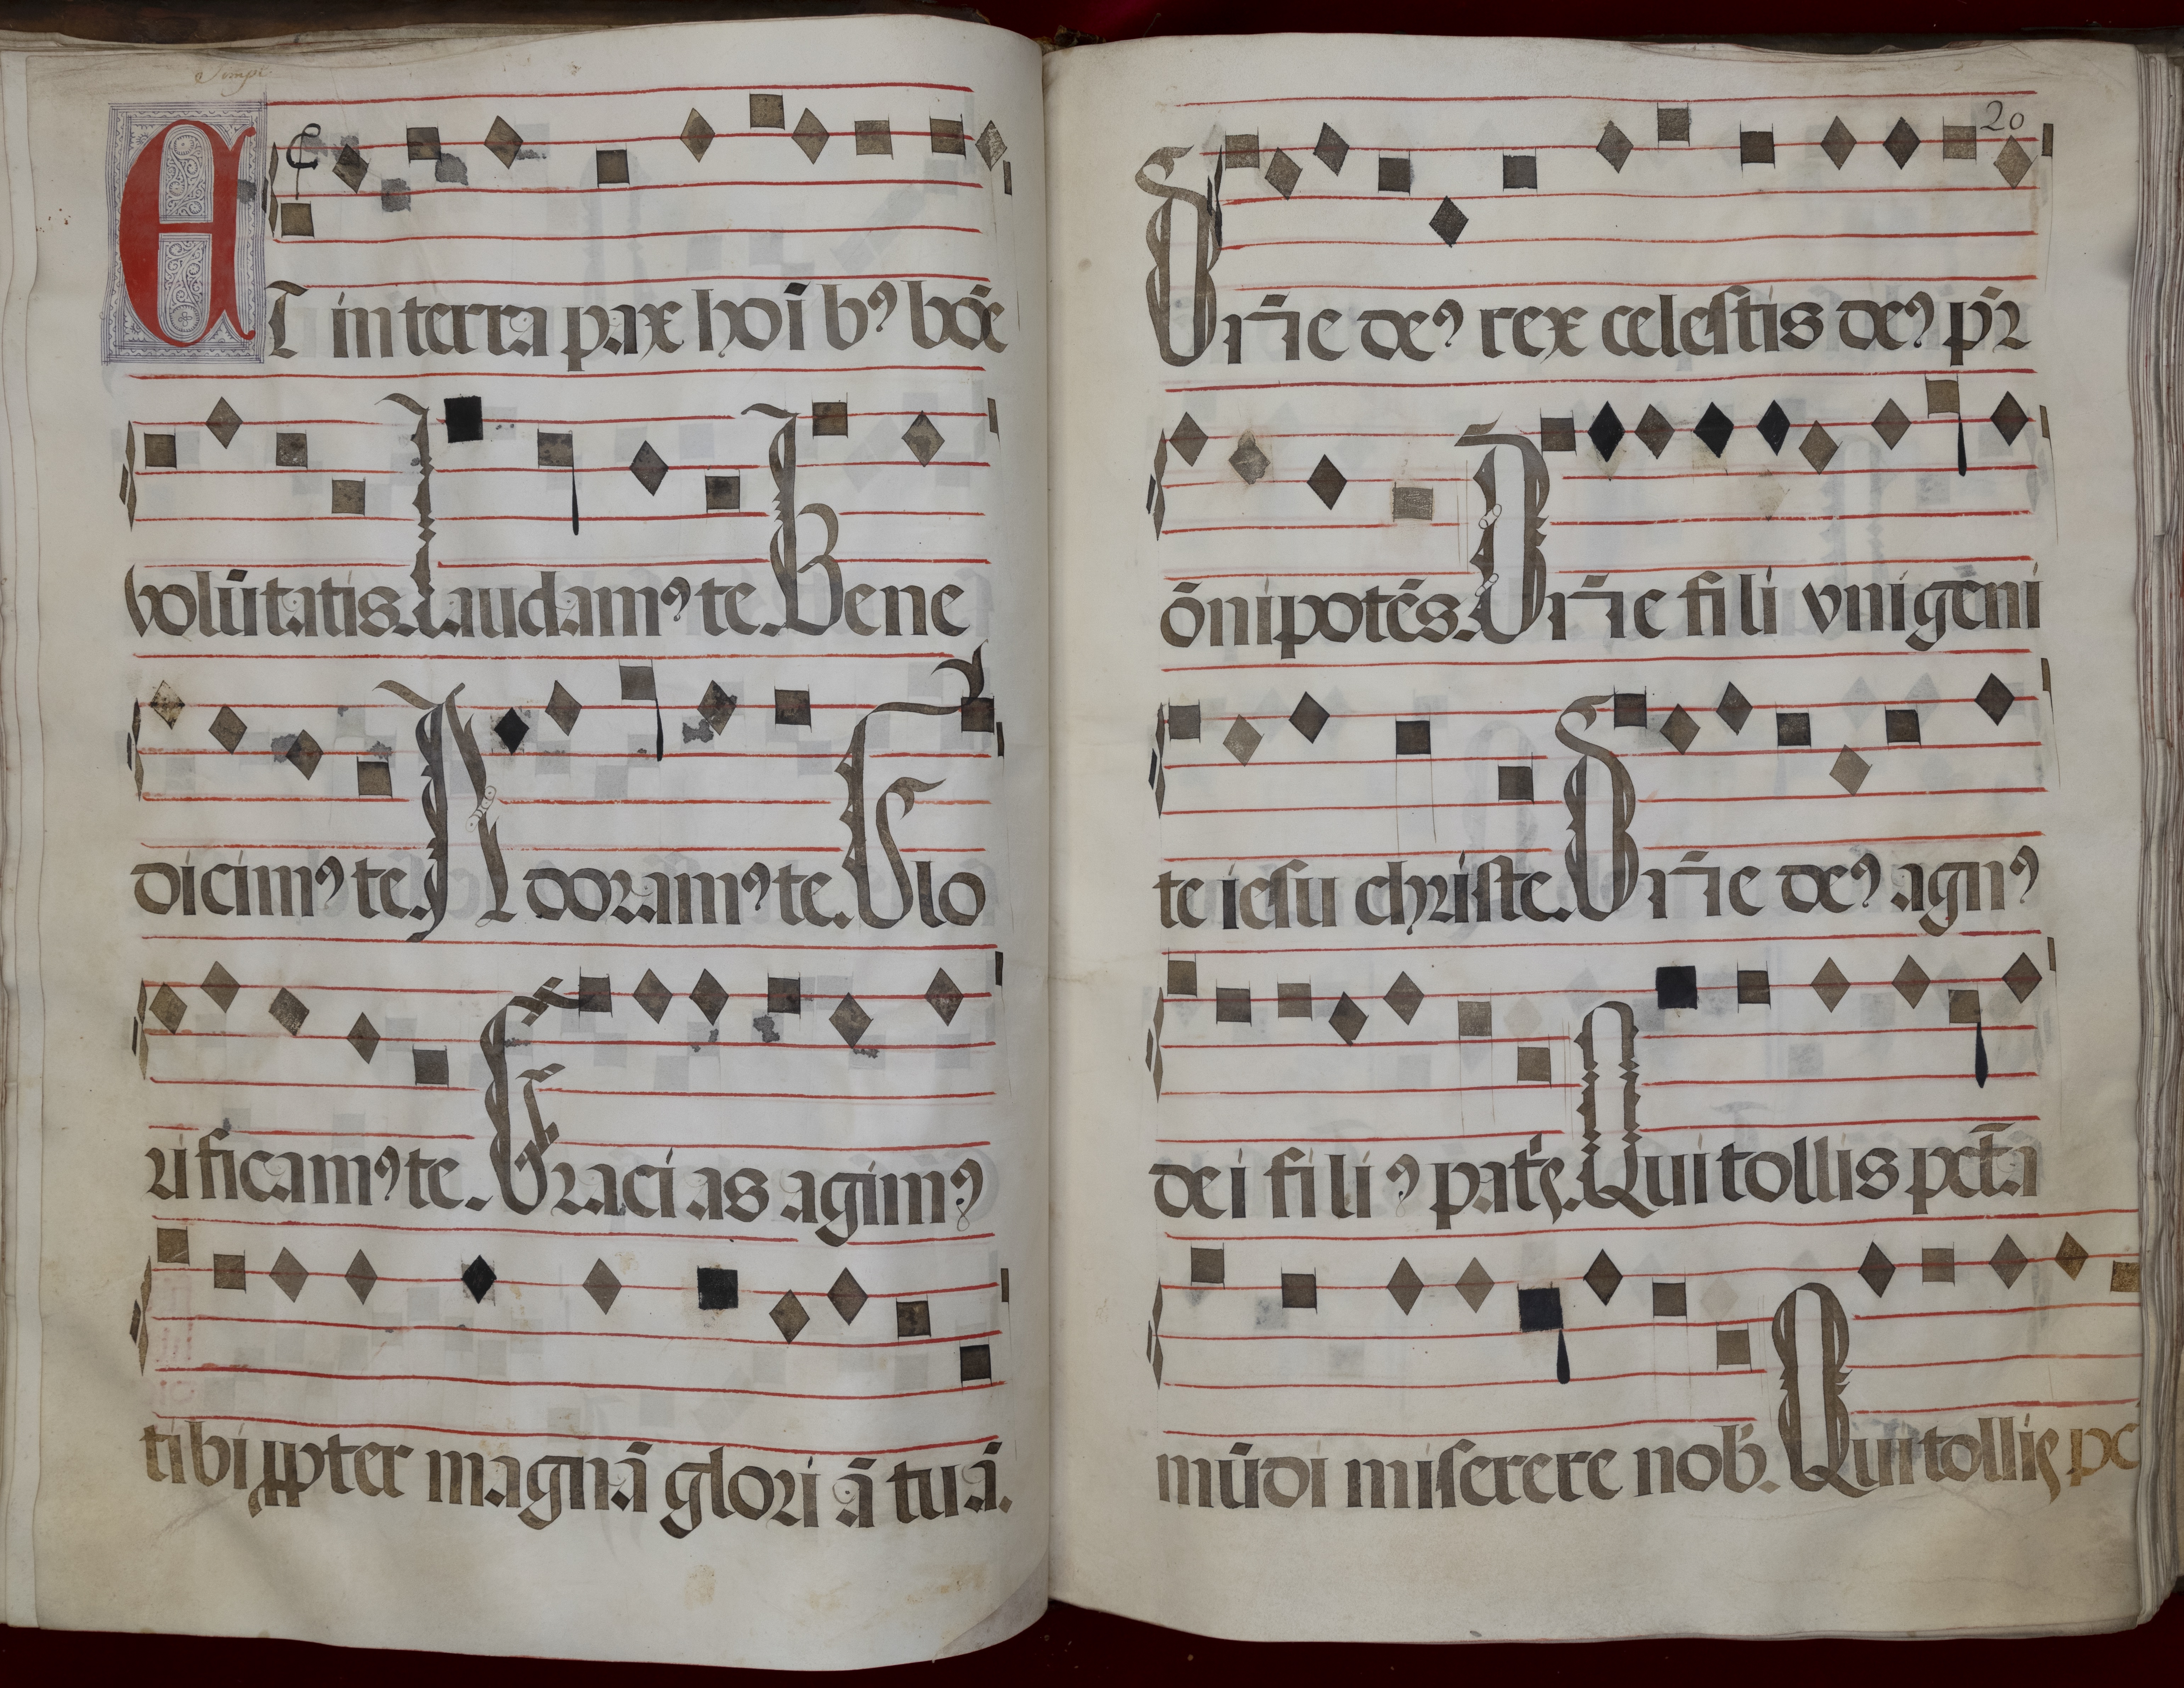 Simpl
ET in terra pax hoī bꝰ boē
volūtatis. Laudamꝰ te. Bene
dicimꝰ te. Adoramꝰ te. Glo
rificamꝰ te. Gracias agimꝰ
tibi ꝓpter magnā gloriā tuā.
20
Dn̄e deꝰ rex celestis deꝰ pr̄
ōnipotēs. Dn̄e fili vnigēni
te iesu christe. Dn̄e deꝰ agnꝰ
dei filiꝰ patꝭ. Qui tollis pctā
mūdi miserere nob̄. Qui tollis pc